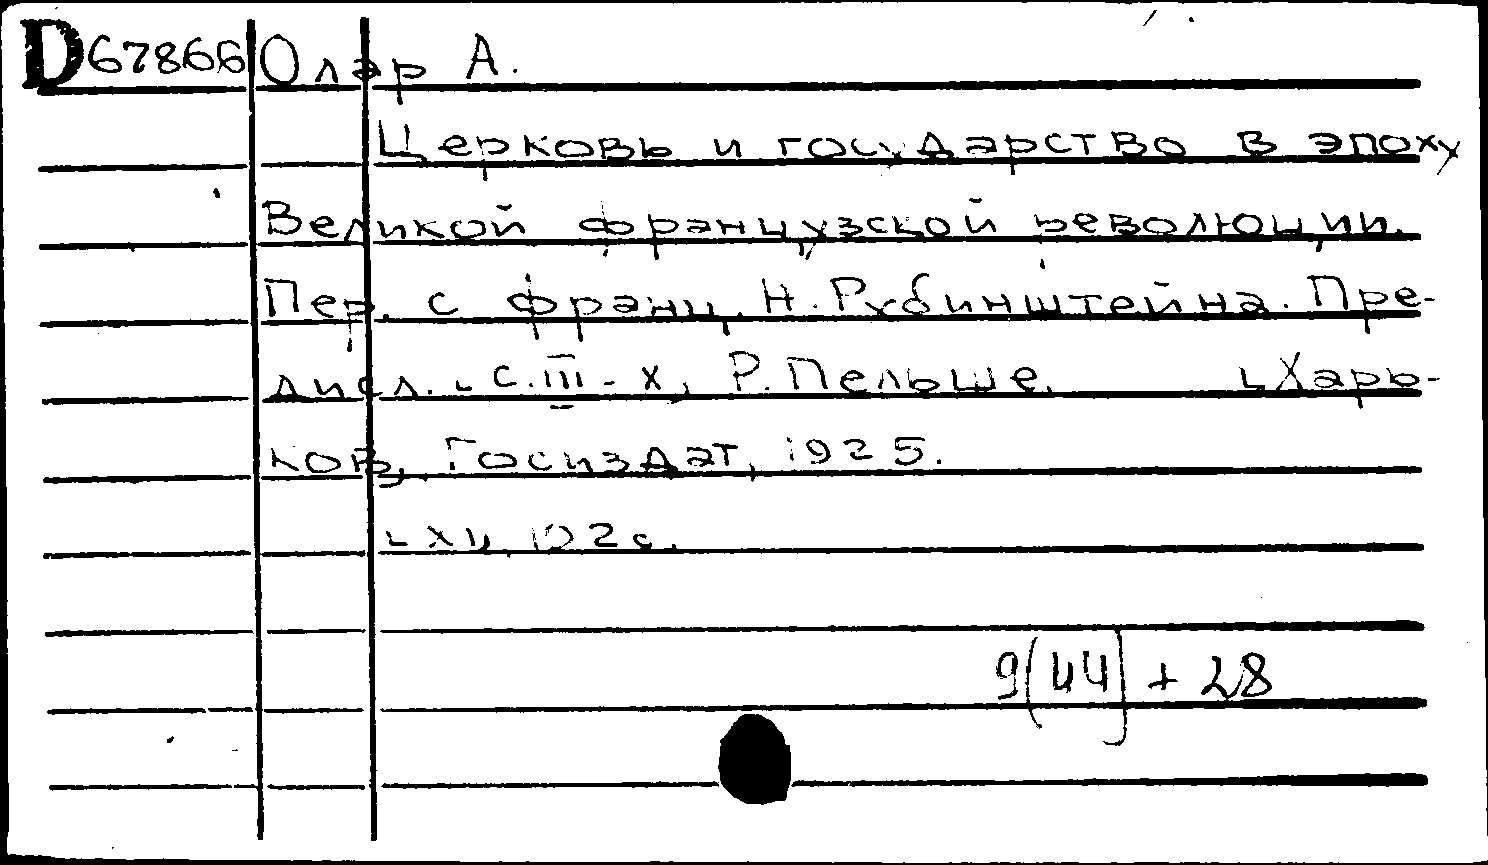 D67866 Олар А.
Церковь и государство в эпоху
Великой французской революции.
Пер. с франц. Н. Рубинштейна. Пре-
дисл. с. III-X, Р. Пельше. Харь-
ков, Госиздат, 1925.
с.
9(44) + 28